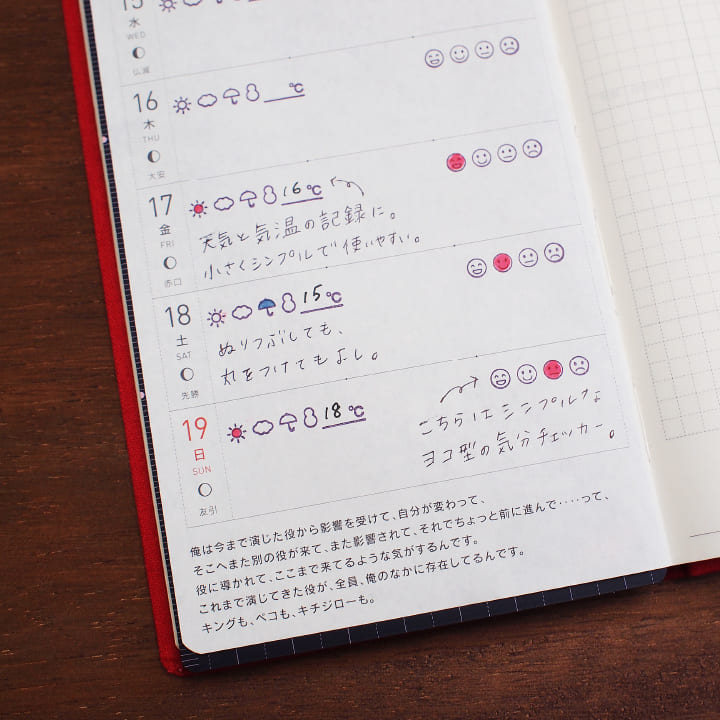 15
水
WED
仏滅
16
℃
木
THU
大安
17
16℃
金
FRI
天気と気温の記録に。
赤口
小さくシンプルで使いやすい。
18
15℃
土
SAT
ぬりつぶしても、
先勝
丸をつけてもよし。
19
18℃
日
SUN
こちらはシンプルな
友引
ヨコ型の気分チェッカー。
俺は今まで演じた役から影響を受けて、自分が変わって、
そこへまた別の役が来て、また影響されて、それでちょっと前に進んで‥‥って、
役に導かれて、ここまで来てるような気がするんです。
これまで演じてきた役が、全員、俺のなかに存在してるんです。
キングも、ペコも、キチジローも。